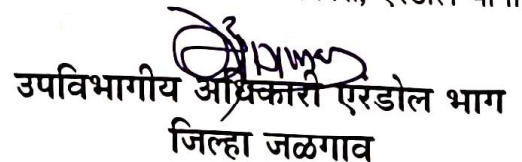 उपविभागीय अधिकारी एरंडोल भाग
जिल्हा जळगाव